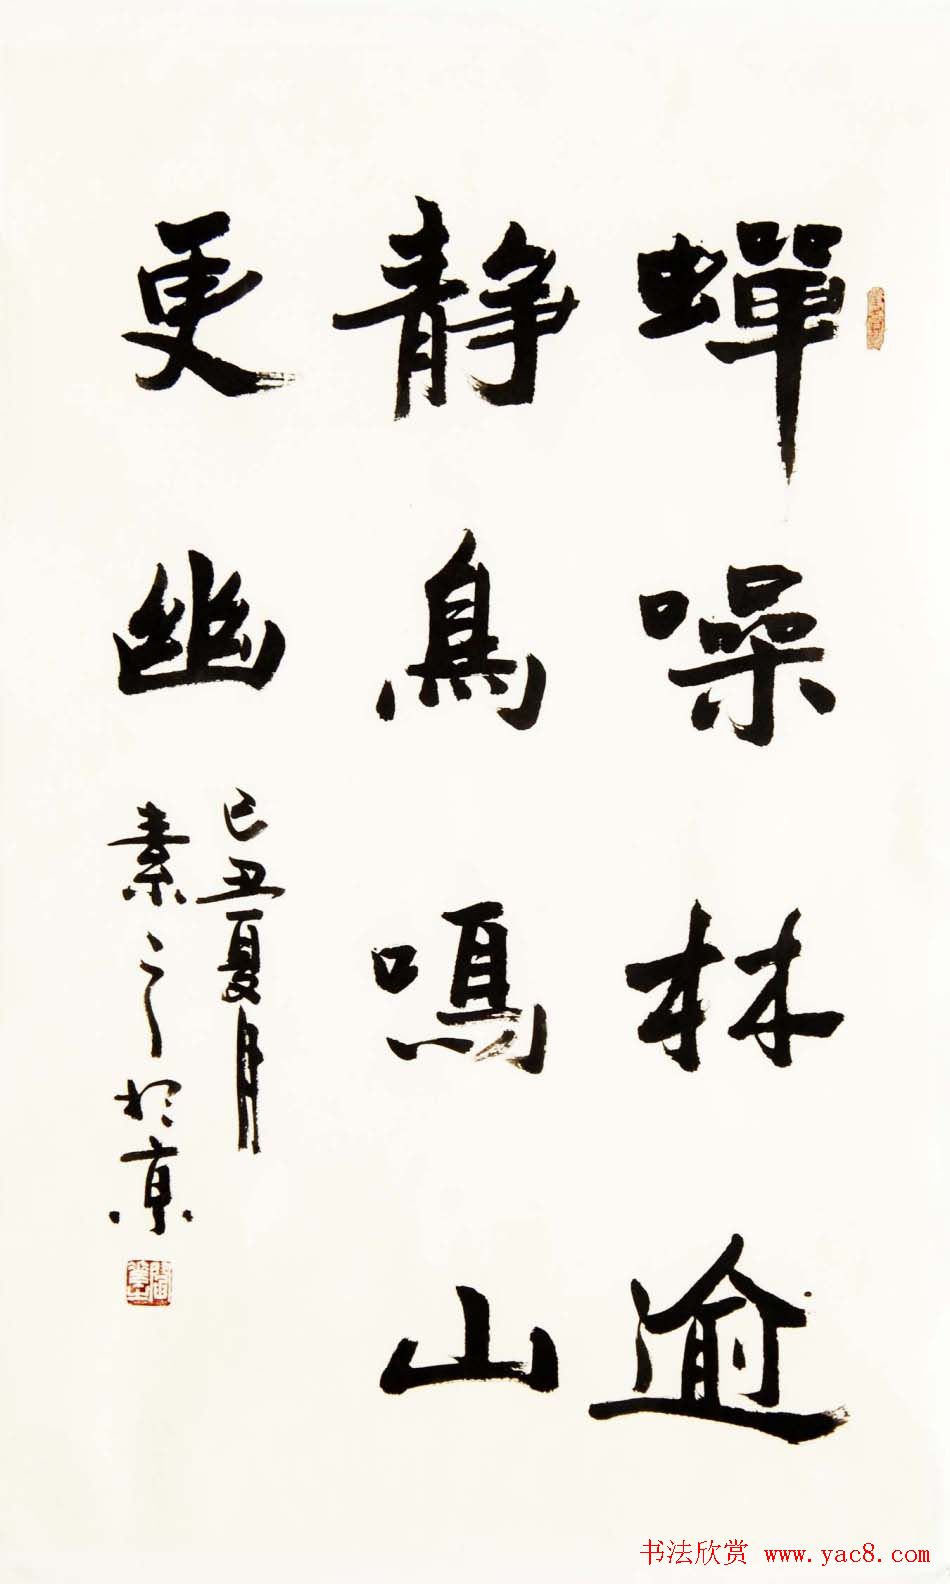 蟬噪林逾
靜鳥鳴山
更幽
己丑夏月
素之於京
书法欣赏 www.yac8.com